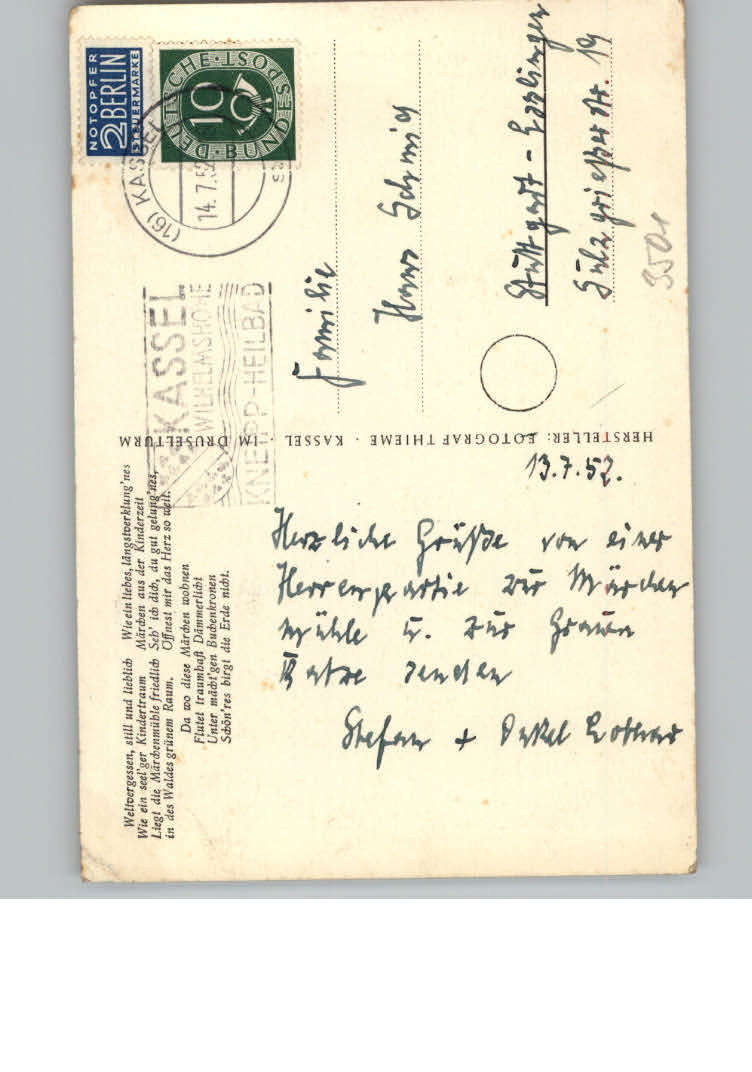 Weltvergessen, still und lieblich
Wie ein seel'ger Kindertraum
Liegt die Märchenmühle friedlich
in des Waldes grünem Raum.
Wie ein liebes, längstverklung'nes
Märchen aus der Kinderzeit
Seh' ich dich, du gut gelung'nes,
Öffnest mir das Herz so weit.
Da wo diese Märchen wohnen
Flutet traumhaft Dämmerlicht
Unter mächt'gen Buchenkronen
Schön'res birgt die Erde nicht.
HERSTELLER: FOTOGRAF THIEME · KASSEL · IM DRUSELTURM
13.7.52.
Herzliche Grüße von einer
Herrenpartie zur Märchen
mühle u. zur Grauen
Katze senden
Stefan + Onkel Lothar
NOTOPFER
2 BERLIN
STEUERMARKE
DEUTSCHE · BUNDESPOST
10
(16) KASSEL
14.7.52
KASSEL
WILHELMSHÖHE
KNEIPP-HEILBAD
Familie
Hans Schmid
Stuttgart-
Str. 19
350